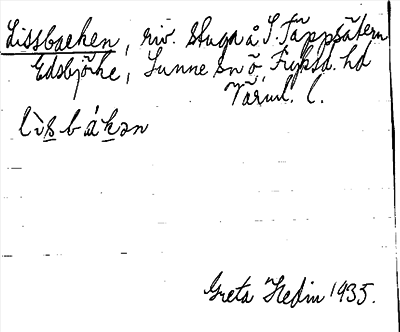 Lissbacken, riv. stuga å S. Täppsätern
Edsbjörke, Sunne sn ö, Fryksd. hd
Värml. l.
lìsbákən
Greta Hedin 1935.